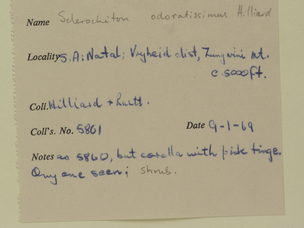 Name Sclerochiton odoratissimus Hilliard
Locality S.A: Natal: Vryheid dist, Zungwini Mt.
c. 5000 ft.
Coll. Hilliard + Burtt.
Coll's. No. 5861 Date 9-1-69
Notes as 5860, but corolla with pink tinge.
Only one seen; shrub.